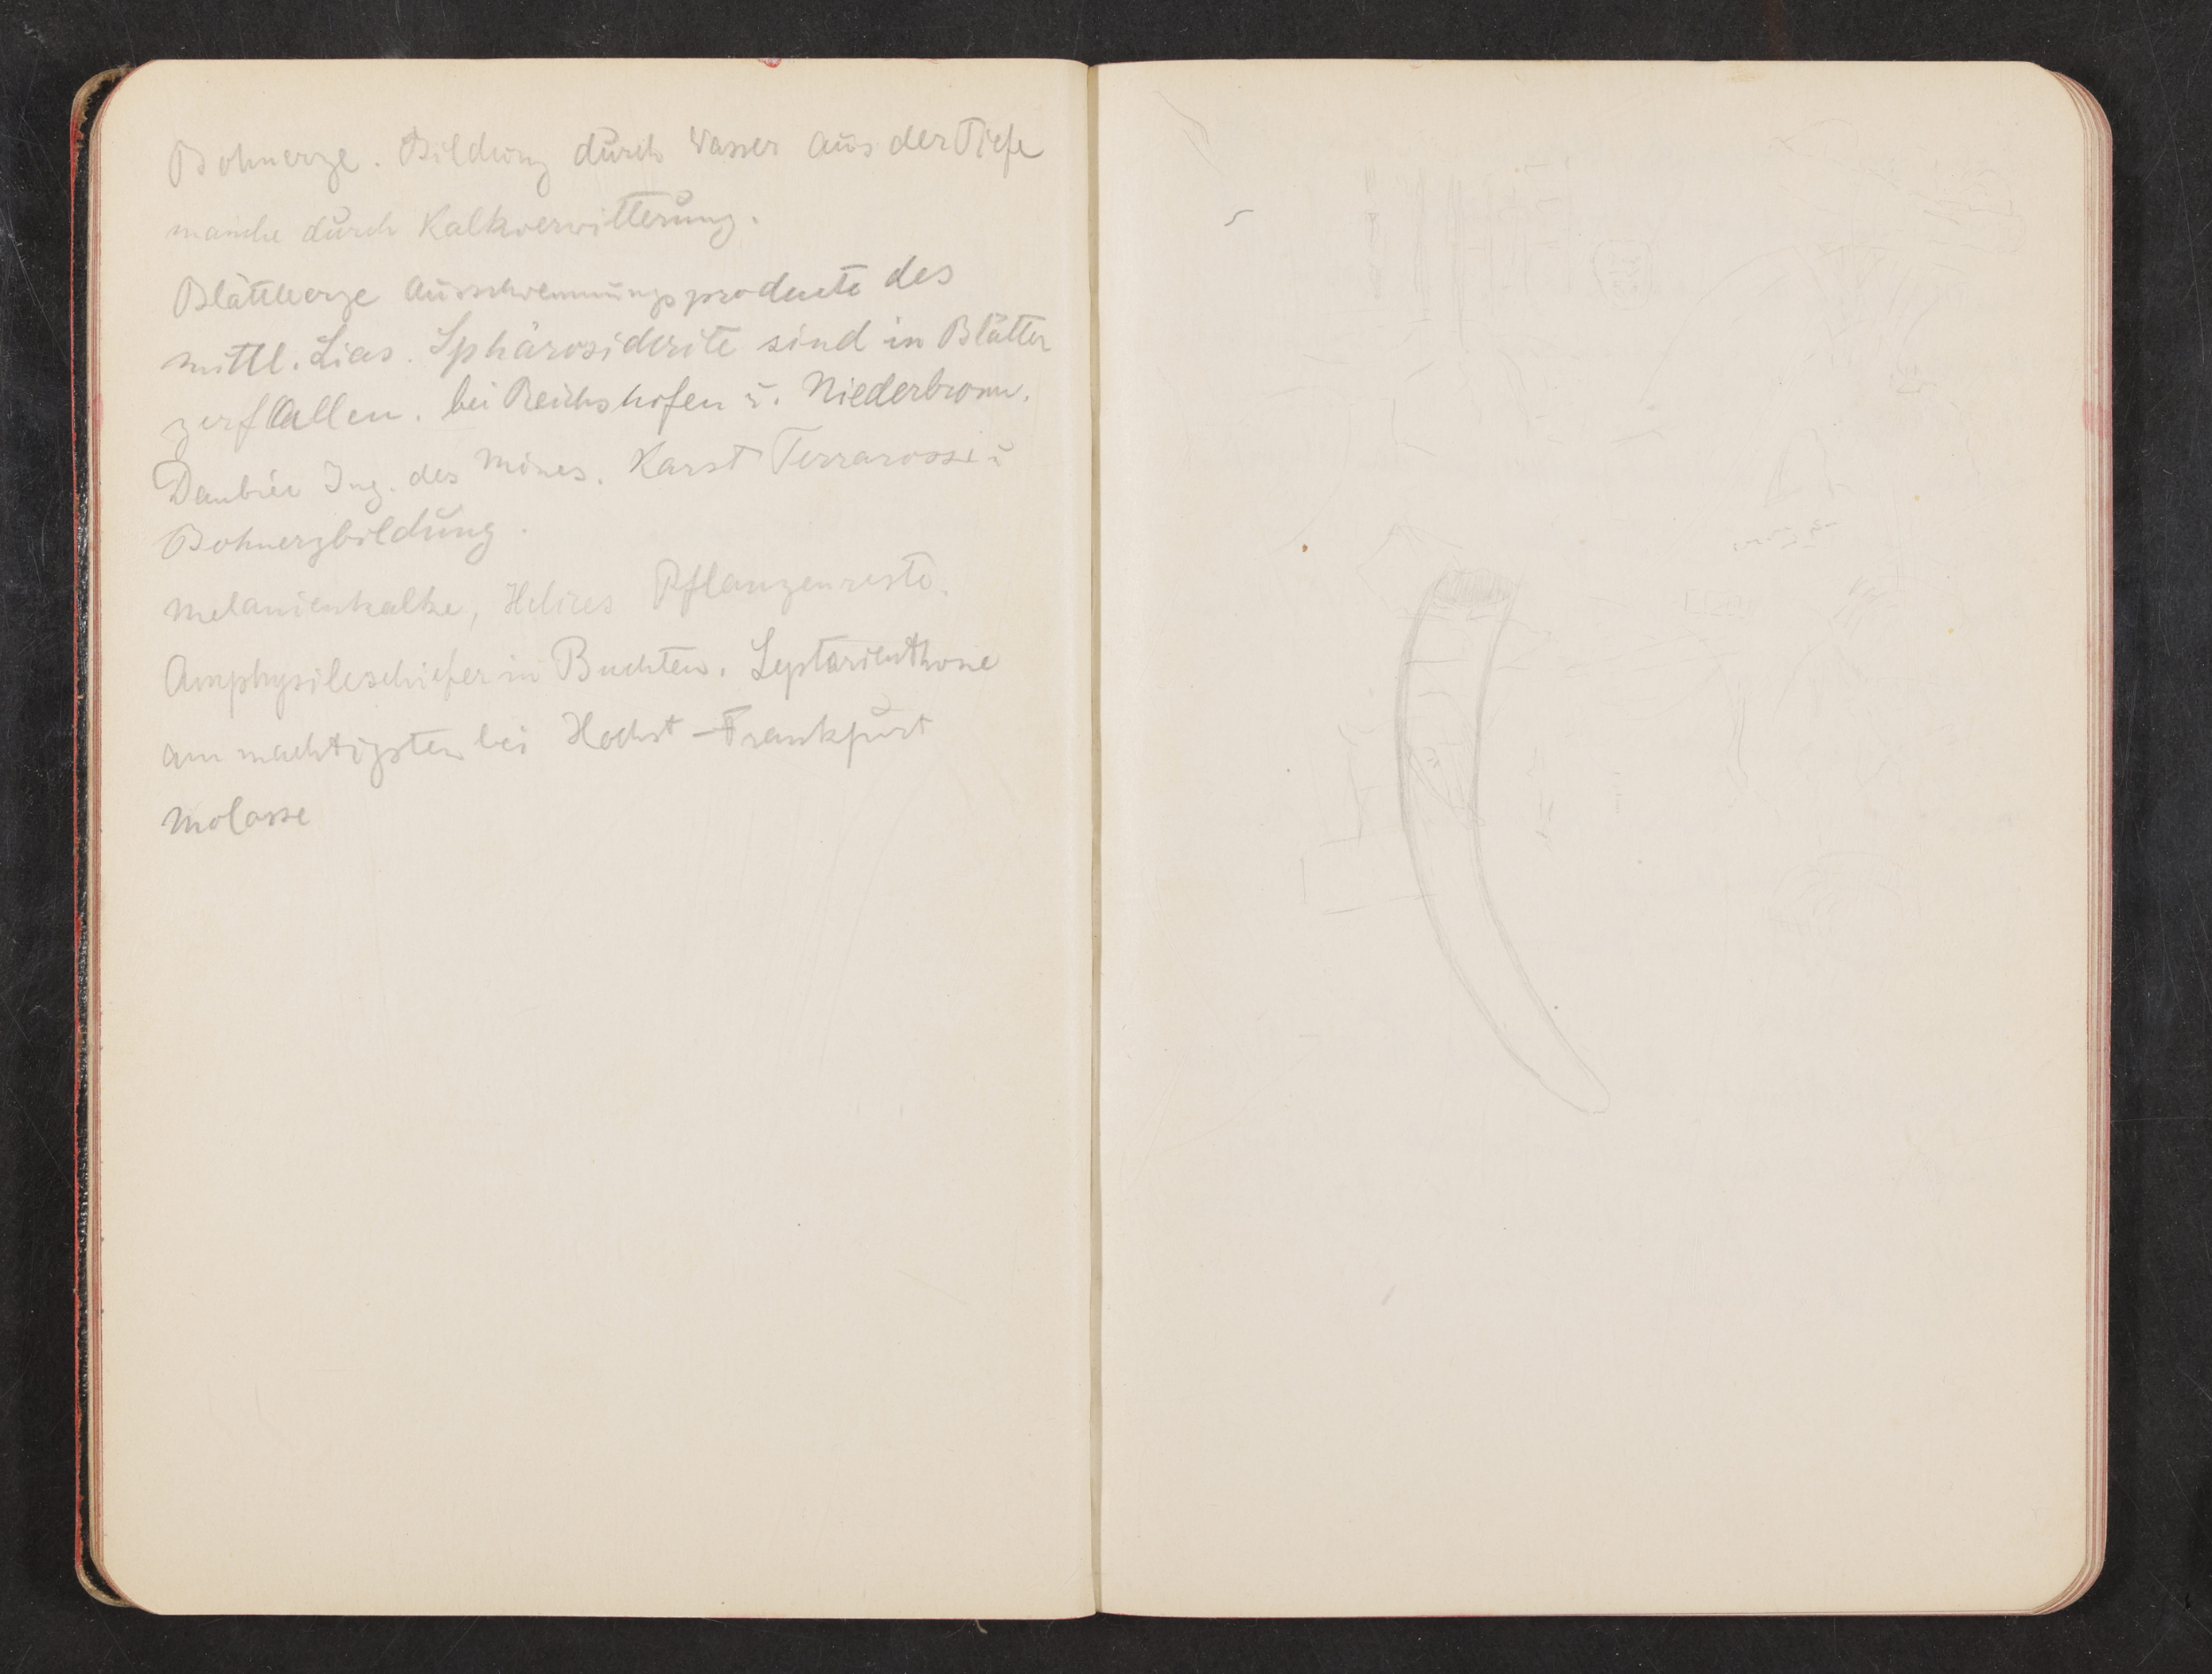 Bohnerze. Bildung durch Wasser aus der Tiefe
manche durch Kalkverwitterung.
Blättherze Ausschwemmungsproducte des
mittl. Lias. Sphärosiderite sind in Blätter
zerfallen. bei Reichshofen u. Niederbronn.
Daubrée Ing. des Mines. Karst Terrarossa u
Bohnerzbildung.
Melanienkalke, Helices Pflanzenreste.
Amphysileschiefer in Buchten. Septarienthone
am machtigsten bei Hochst - Frankfurt
Molasse